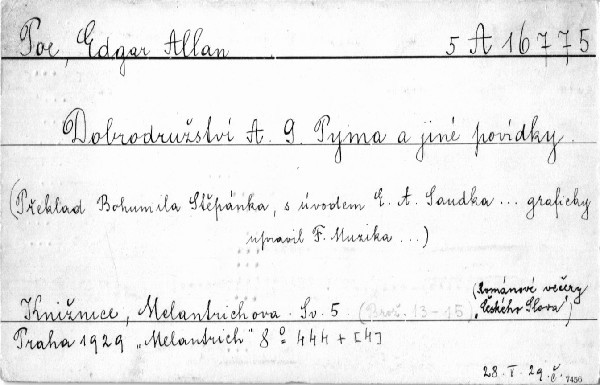 Poe, Edgar Allan 5 A 16775
Dobrodružství A. G. Pyma a jiné povídky.
(Překlad Bohumila Štěpánka, s úvodem E. A. Saudka ... graficky
upravil F. Muzika ...)
(Románové večery
Knižnice, Melantrichova. Sv. 5. (Brož. 13-15) „Českého Slova")
Praha 1929 „Melantrich" 8° 444 + [4]
28. I. 29. č. 7456